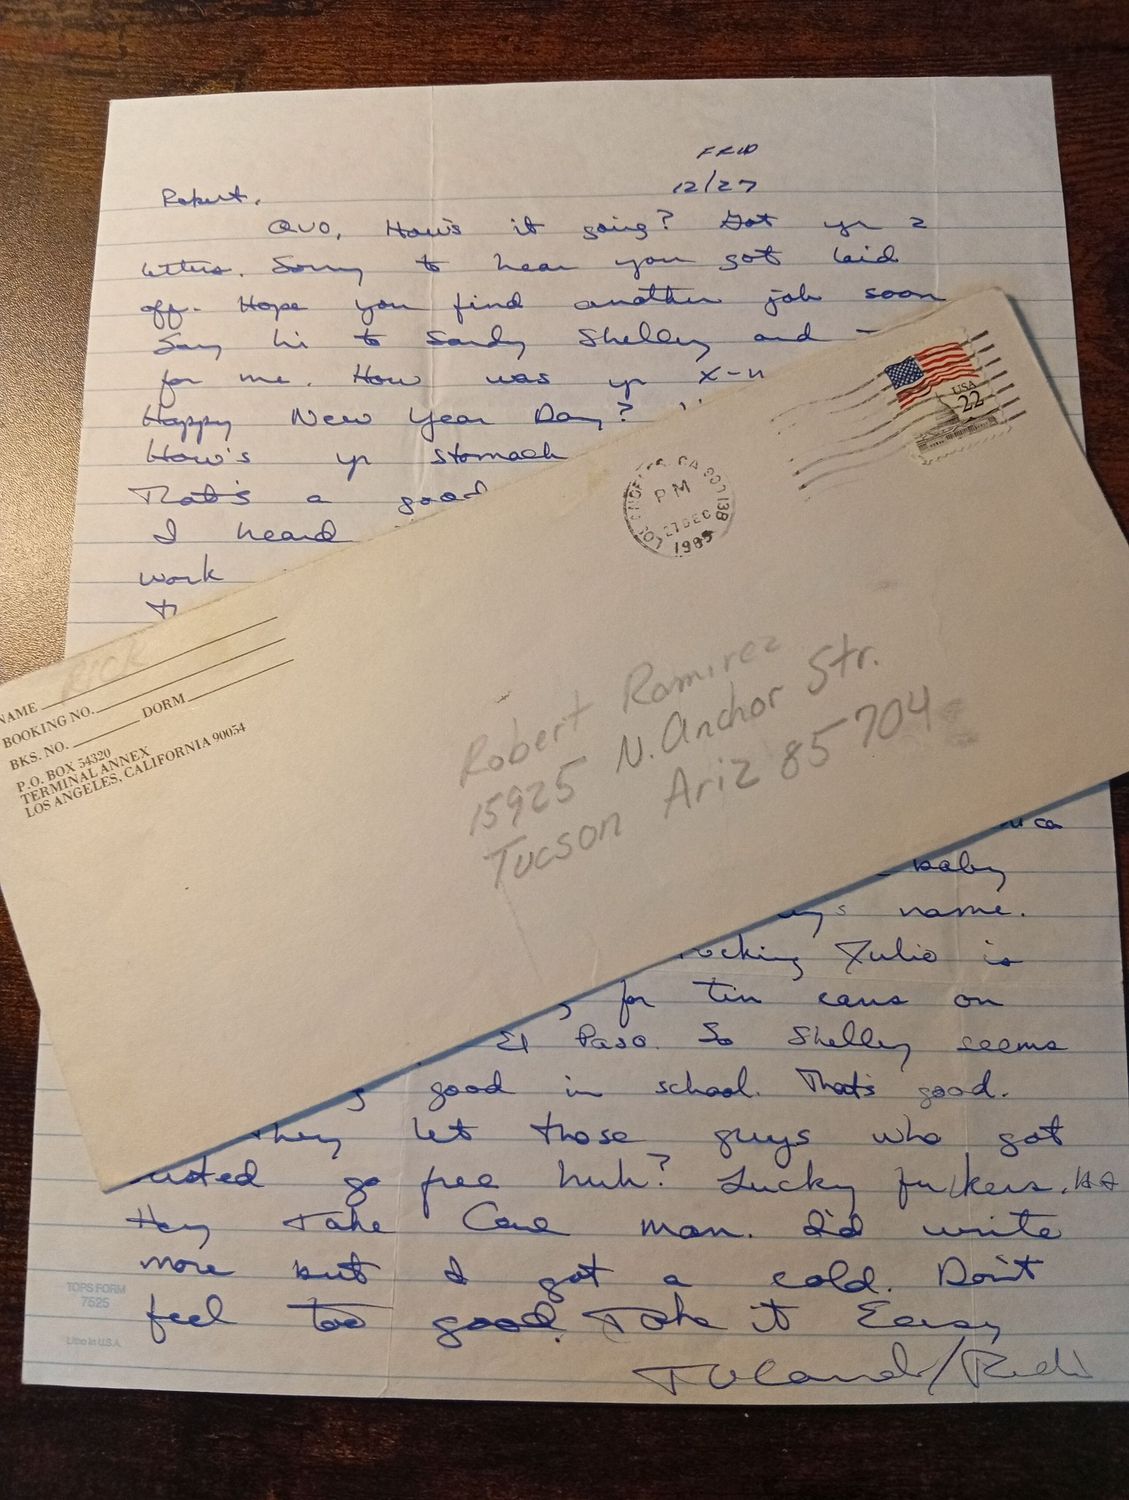 FRID
12/27
Robert,
QUO, How's it going? Got yr 2
letters. Sorry to hear you got laid
off. Hope you find another job soon
Say hi to Sandy Shelley and
for me. How was yr X-
Happy New Year Day?
How's yr stomach
That's a good
I heard
work
USA
22
LOS ANGELES, CA 907 13B
PM
27 DEC
1985
NAME RICK
BOOKING NO.
BKS. NO. DORM
P.O. BOX 54320
TERMINAL ANNEX
LOS ANGELES, CALIFORNIA 90054
Robert Ramirez
15925 N. Anchor Str.
Tucson Ariz 85704
baby
name.
Julio is
for tin cans on
El Paso. So Shelley seems
good in school. That's good.
they let those guys who got
busted go free huh? Lucky fuckers. HA
Hey Take Care man. I'd write
more but I got a cold. Don't
feel too good. Take it Easy
TOPS FORM
7525
Litho in U.S.A.